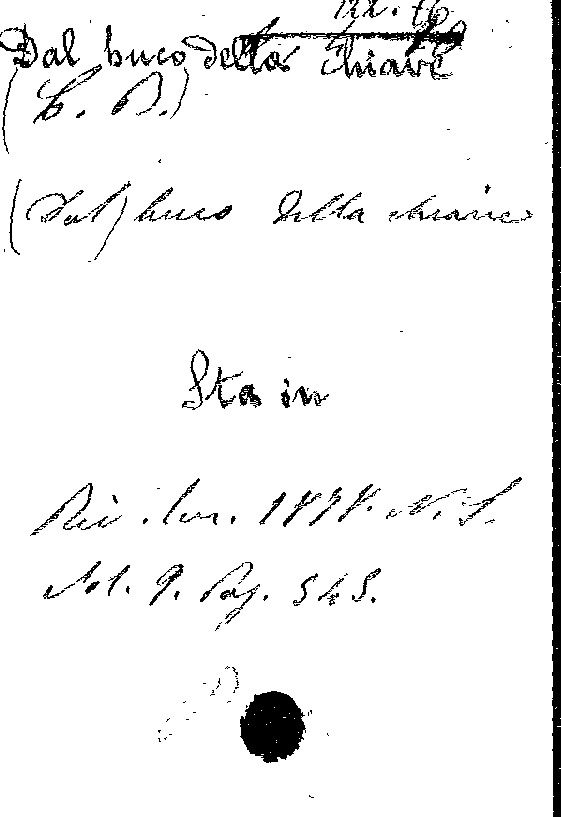 Dal buco della chiave
(C. B.)
(Dal) buco della chiave
Sta in
Riv. Eur. 1878. N. S.
Vol. 9. Pag. 545.